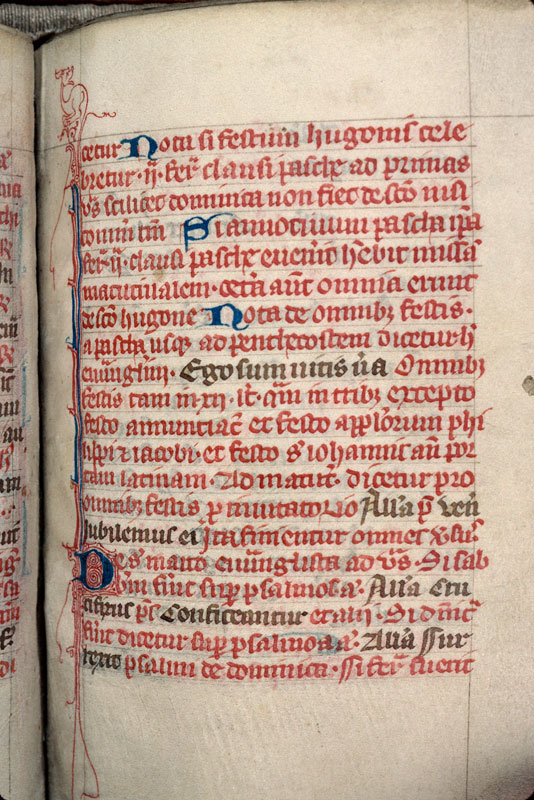 cetur Nota si festum hugonis cele
bretur · ij · fer clausi pasche ad primas
vs scilicet dominica non fiet de sco nisi
comm tm Si annotinum pascha ipa
fer · ij · clausi pasche euenit hebit missa
matutinalem · ceta aut omnia erunt
de sco hugone Nota de omnibz festis ·
a pascha usqz ad penthecostem dicetur h
euuglm · Ego sum uitis ua Omnibz
festis tam in xij · lc · qm in tribz excepto
festo annunciac et festo applorum phi
lippi z iacobi · et festo s iohannis an por
tam latinam · Ad matut · dicetur pro
omnibz festis p inuitatorio Alla p ven
Jubilemus et Ita finientur omnes vsus
De s marco euuglista ad vs · Si sab
bm fuit sup psalmos a · Alla Cru
cifixus ps Confiteantur et alij · Si dnic
fuit dicetur sup psalmo a a · Alla Sur
rexit psalmi de dominica · Si fer fuerit